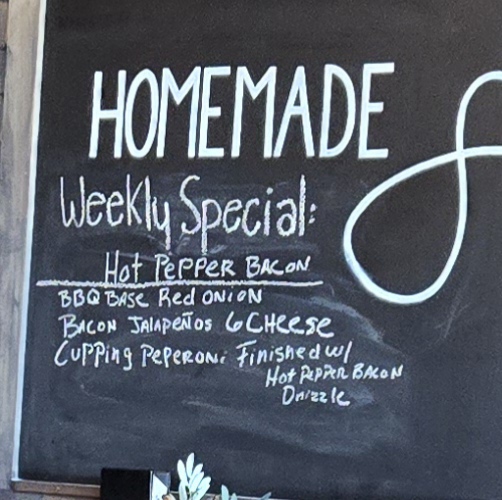 HOMEMADE
Weekly Special:
Hot PePPER BACON
BBQ BASE Red ONION
BACON JAlAPEÑOS 6 CHEESE
CUPPing PEPERONi Finished w/
Hot PEPPER BACON
Drizzle